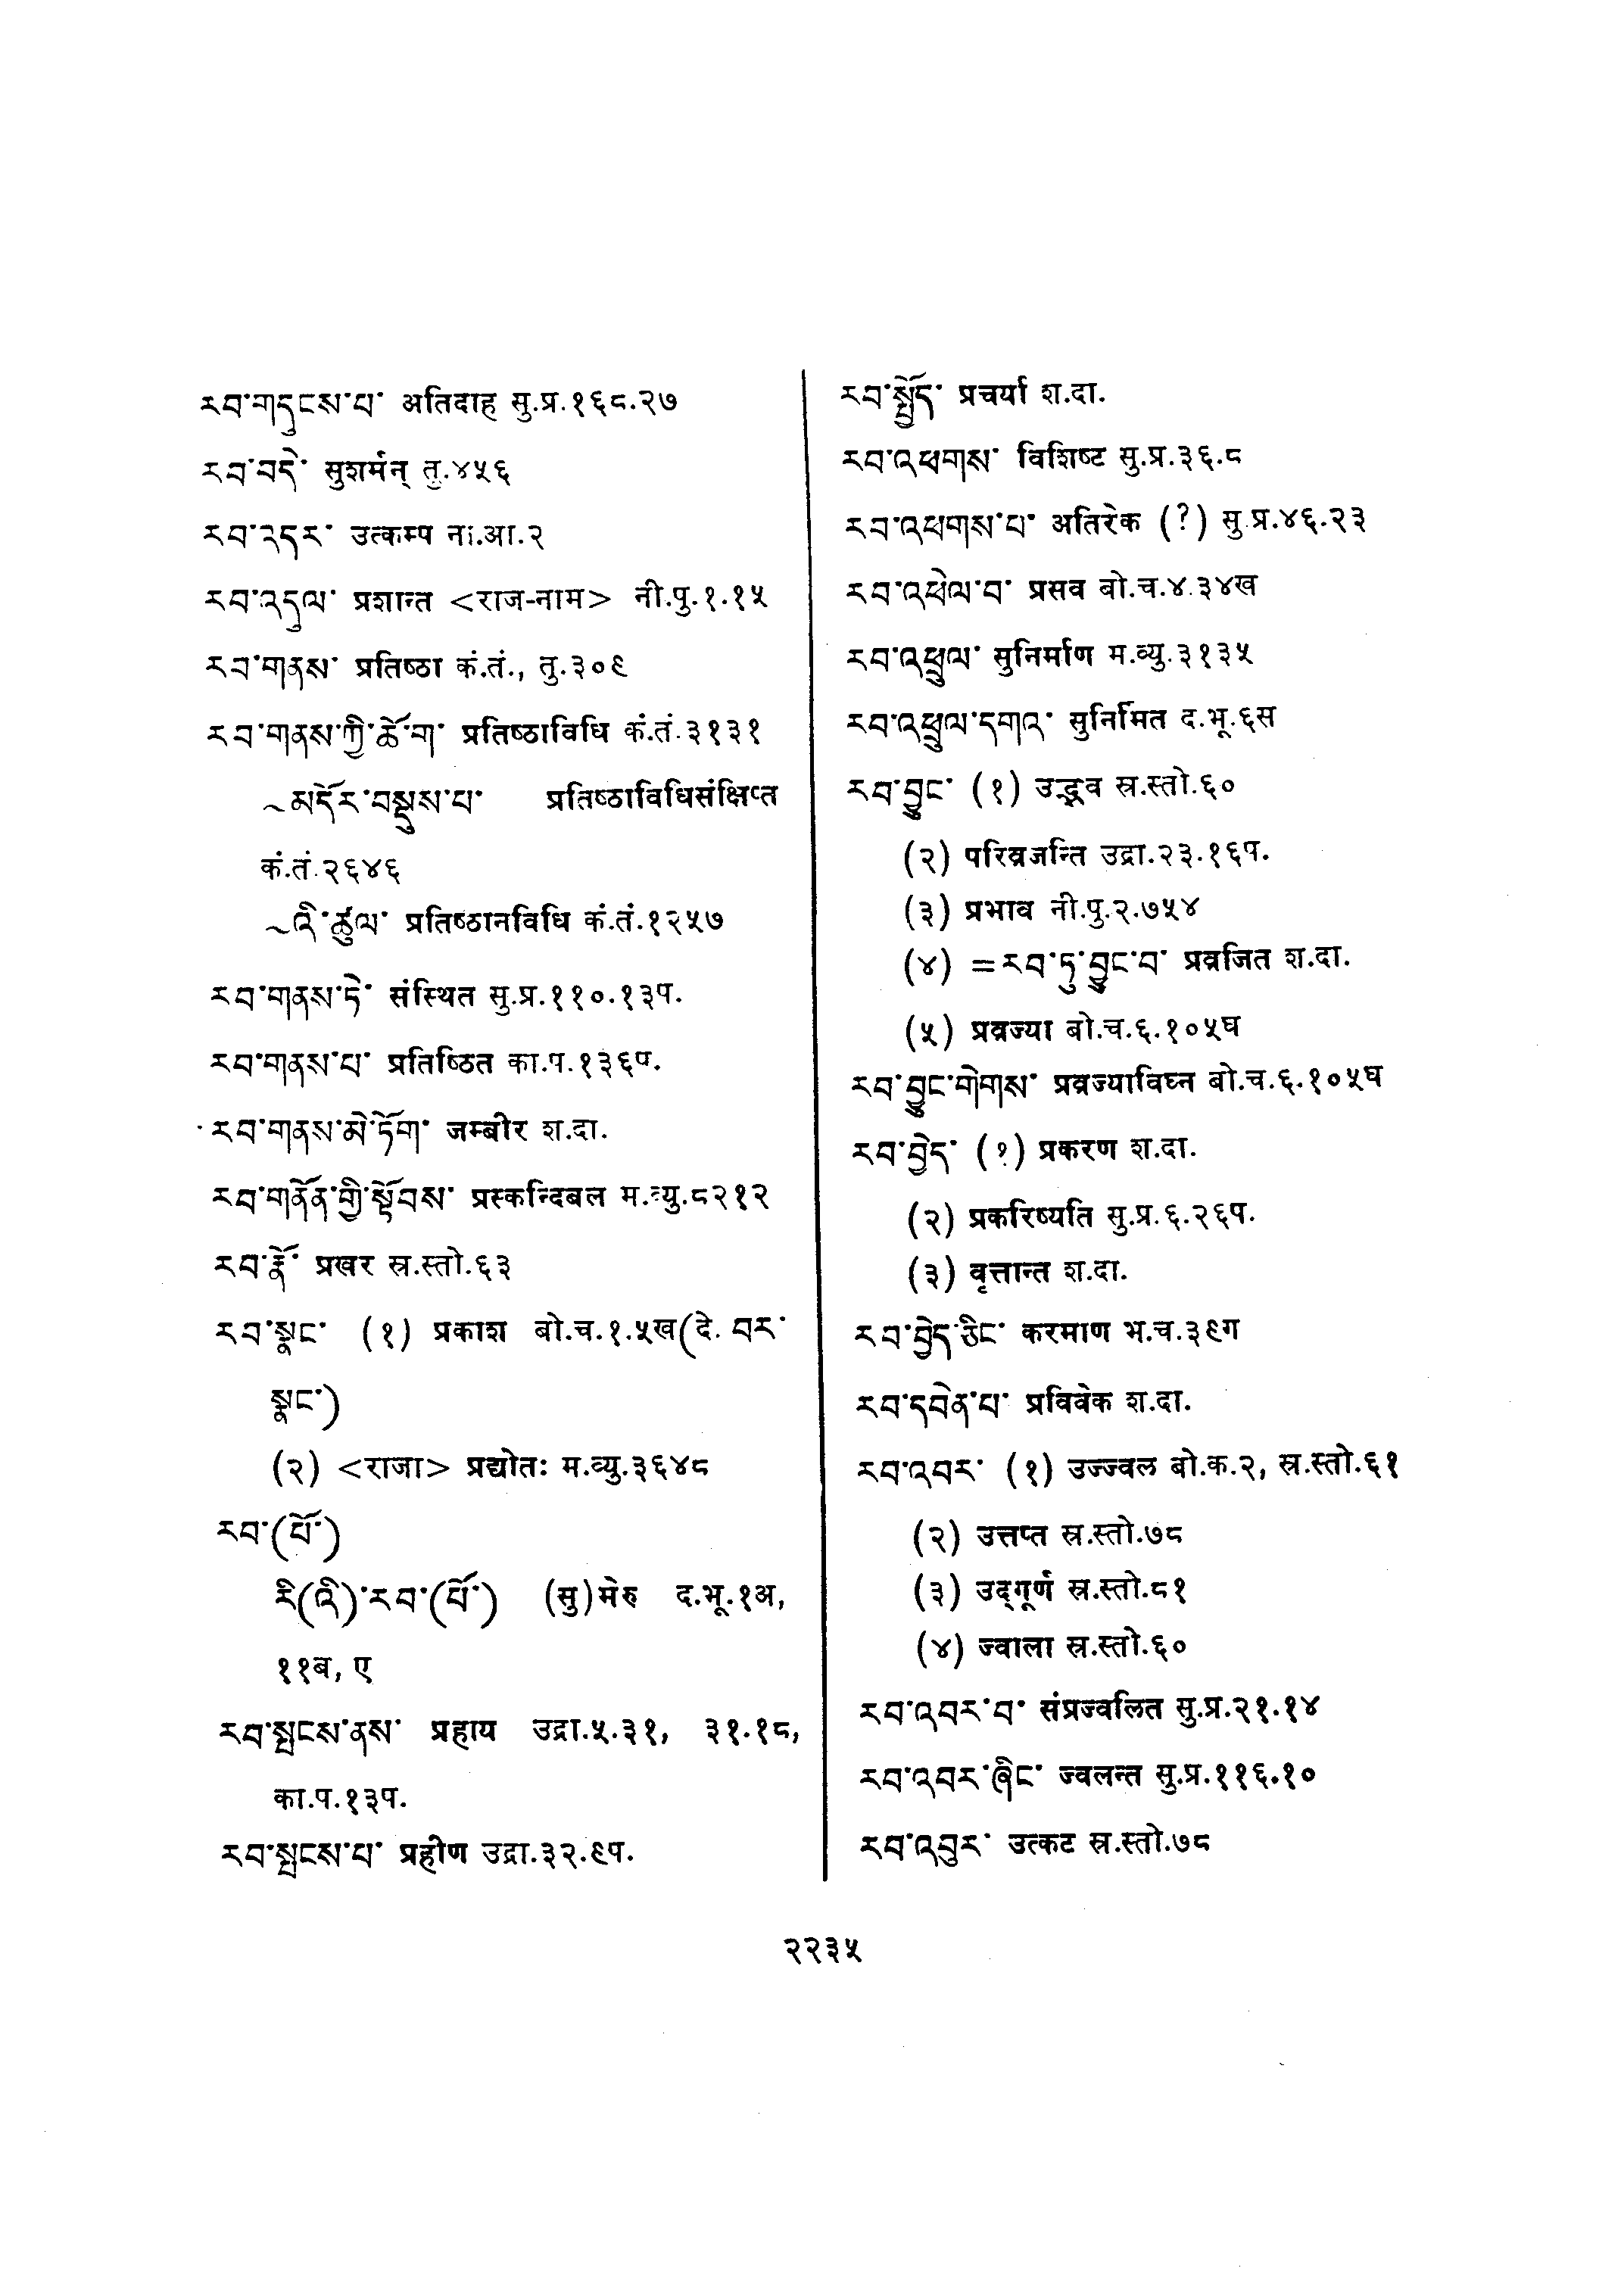 རབ་གདུངས་པ་ अतिदाह सु.प्र.१६८.२७
རབ་བདེ་ सुशर्मन् तु.४५६
རབ་འདར་ उत्कम्प ना.आ.२
རབ་འདུལ་ प्रशान्त <राज-नाम> नी.पु.१.१५
རབ་གནས་ प्रतिष्ठा कं.तं., तु.३०९
རབ་གནས་ཀྱི་ཆོ་ག་ प्रतिष्ठाविधि कं.तं.३१३१
~མདོར་བསྡུས་པ་ प्रतिष्ठाविधिसंक्षिप्त
कं.तं.२६४६
~འི་ཚུལ་ प्रतिष्ठानविधि कं.तं.१२५७
རབ་གནས་ཏེ་ संस्थित सु.प्र.११०.१३प.
རབ་གནས་པ་ प्रतिष्ठित का.प.१३६प.
རབ་གནས་མེ་ཏོག་ जम्बीर श.दा.
རབ་གནོན་གྱི་སྟོབས་ प्रस्कन्दिबल म.व्यु.८२१२
རབ་རྣོ་ प्रखर स्र.स्तो.६३
རབ་སྣང་ (१) प्रकाश बो.च.१.५ख(दे. བར་
སྣང་)
(२) <राजा> प्रद्योतः म.व्यु.३६४८
རབ་(པོ་)
རི(འི)་རབ་(པོ་) (सु)मेरु द.भू.१अ,
११ब, ए
རབ་སྤངས་ནས་ प्रहाय उद्रा.५.३१, ३१.१८,
का.प.१३प.
རབ་སྤངས་པ་ प्रहीण उद्रा.३२.९प.
རབ་སྤྱོད་ प्रचर्या श.दा.
རབ་འཕགས་ विशिष्ट सु.प्र.३६.८
རབ་འཕགས་པ་ अतिरेक (?) सु.प्र.४६.२३
རབ་འཕེལ་བ་ प्रसव बो.च.४.३४ख
རབ་འཕྲུལ་ सुनिर्माण म.व्यु.३१३५
རབ་འཕྲུལ་དགའ་ सुनिर्मित द.भू.६स
རབ་བྱུང་ (१) उद्भव स्र.स्तो.६०
(२) परिव्रजन्ति उद्रा.२३.१६प.
(३) प्रभाव नी.पु.२.७५४
(४) =རབ་ཏུ་བྱུང་བ་ प्रव्रजित श.दा.
(५) प्रव्रज्या बो.च.६.१०५घ
རབ་བྱུང་གེགས་ प्रव्रज्याविघ्न बो.च.६.१०५घ
རབ་བྱེད་ (१) प्रकरण श.दा.
(२) प्रकरिष्यति सु.प्र.६.२६प.
(३) वृत्तान्त श.दा.
རབ་བྱེད་ཅིང་ करमाण भ.च.३९ग
རབ་དབེན་པ་ प्रविवेक श.दा.
རབ་འབར་ (१) उज्ज्वल बो.क.२, स्र.स्तो.६१
(२) उत्तप्त स्र.स्तो.७८
(३) उद्‌गूर्ण स्र.स्तो.८१
(४) ज्वाला स्र.स्तो.६०
རབ་འབར་བ་ संप्रज्वलित सु.प्र.२१.१४
རབ་འབར་ཞིང་ ज्वलन्त सु.प्र.११६.१०
རབ་འབུར་ उत्कट स्र.स्तो.७८
२२३५